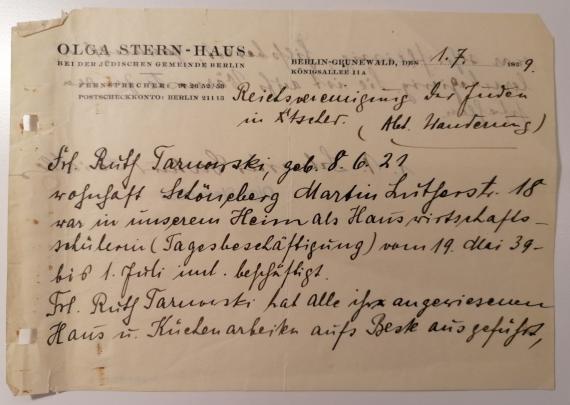 OLGA STERN-HAUS
BEI DER JÜDISCHEN GEMEINDE BERLIN
FERNSPRECHER:
POSTSCHECKKONTO: BERLIN 21113
BERLIN-GRUNEWALD, DEN 1.7. 1939.
KÖNIGSALLEE 11A
Reichsvereinigung der Juden
in
(Abt. Wanderung)
Frl. Ruth Tarnowski, geb. 8.6.21
wohnhaft Schöneberg Martin Lutherstr. 18
war in unserem Heim als Hauswirtschafts-
schülerin (Tagesbeschäftigung) vom 19. Mai 39-
bis 1. Juli incl. beschäftigt.
Frl. Ruth Tarnowski hat alle ihr angewiesenen
Haus u. Küchenarbeiten aufs Beste ausgeführt,